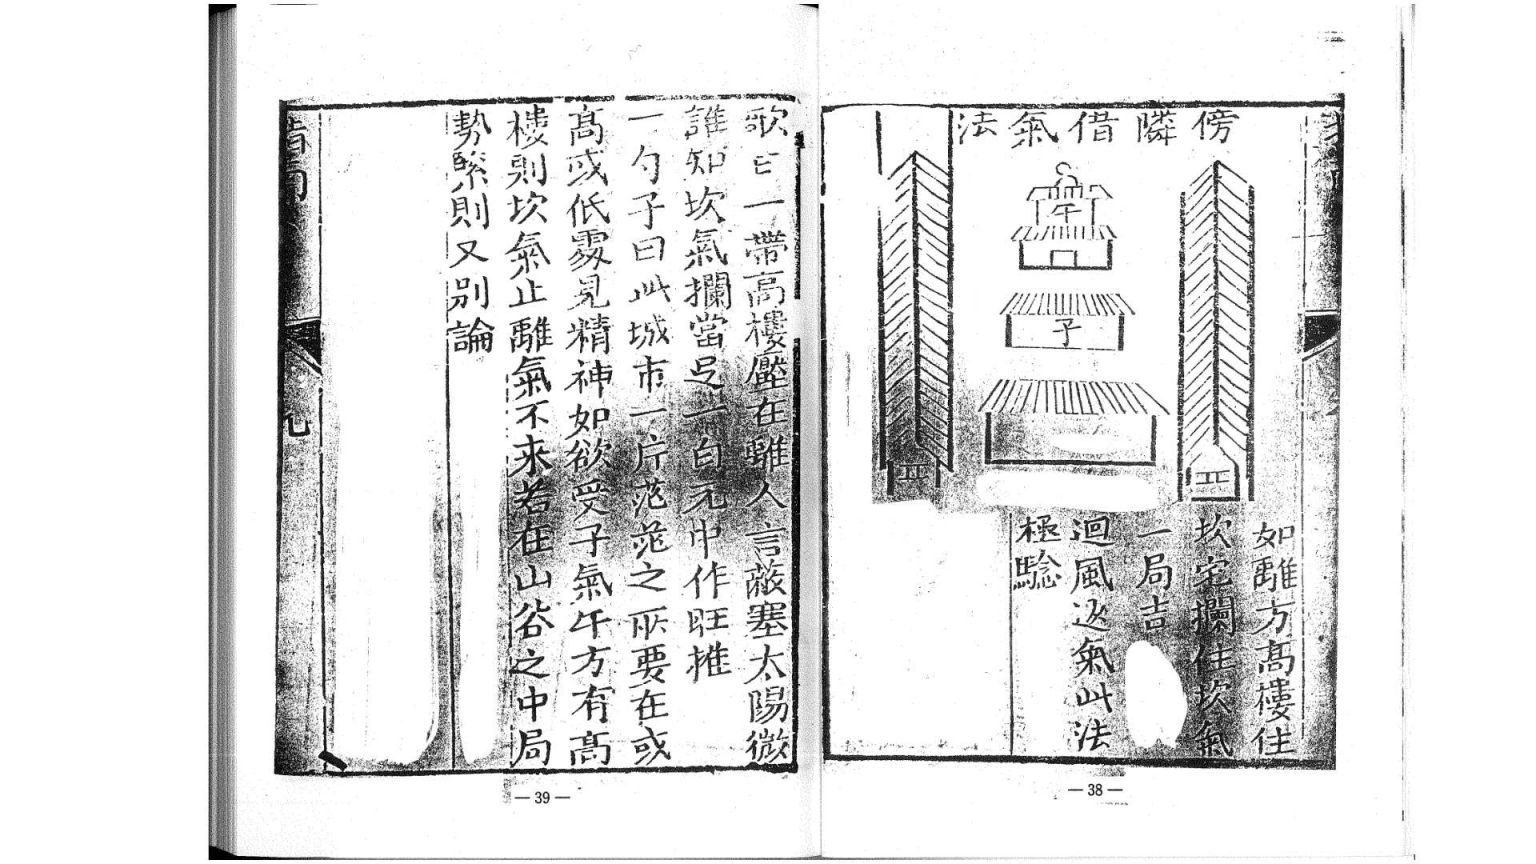 傍隣借氣法
午
子
如離方髙樓住
坎宅攔住坎氣
一局吉
迴風返氣此法
極驗
— 38 —
歌曰一帶高樓壓在離人言蔽塞太陽微
誰知坎氣攔當足一白元中作旺推
一勺子曰此城市一片茫茫之所要在或
髙或低處見精神如欲受子氣午方有髙
樓則坎氣止離氣不來若在山谷之中局
勢緊則又別論
九
— 39 —